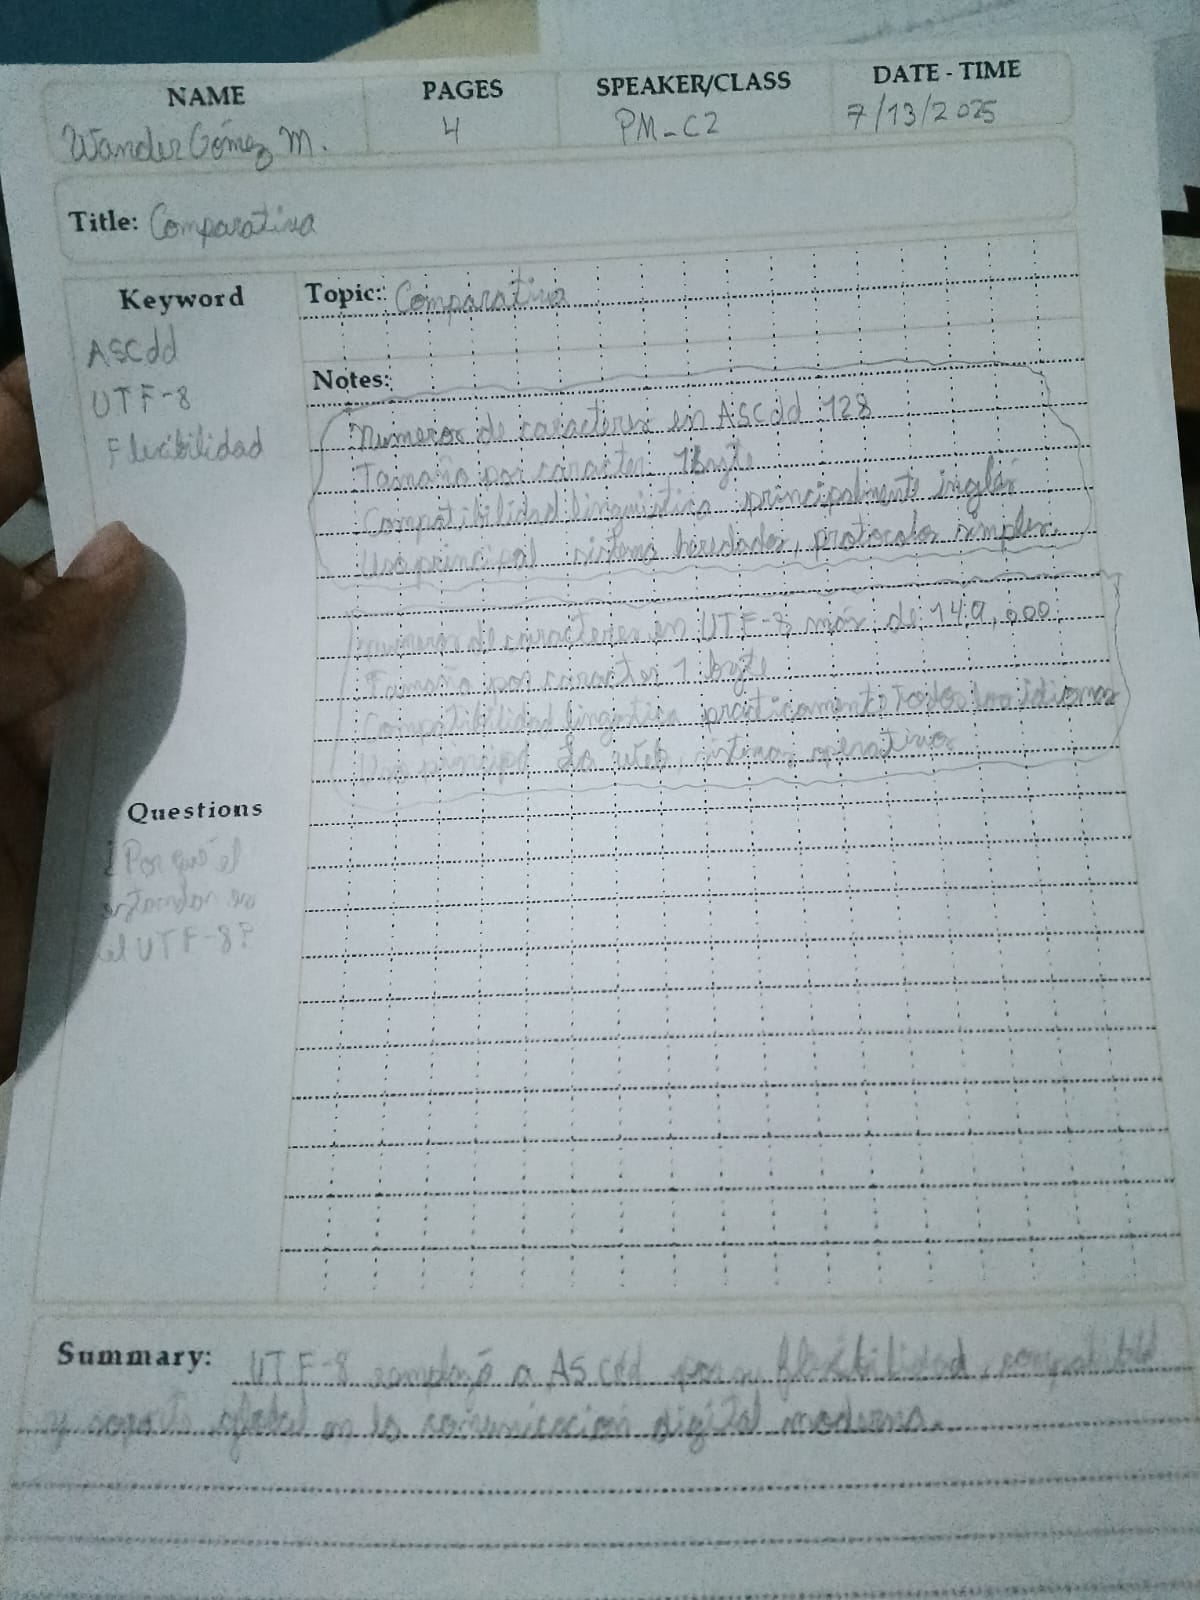 NAME PAGES SPEAKER/CLASS DATE - TIME
Wander Gómez M. 4 PM-C2 7/13/2025
Title: Comparativa
Keyword
ASCdd
UTF-8
Flexibilidad
Topic: Comparativa
Notes:
Numeros de caracteres en ASCdd 128
Tamaño por caracter 1 byte
Compatibilidad linguistica principalmente inglés
Uso principal sistema heredados, protocolos simples.
numeros de caracteres en UTF-8 más de 149,000
Tamaño por caracter 1 byte
Compatibilidad lingistica prácticamente Todos los idiomas
Uso principal La web, sistemas operativos
Questions
¿Por qué el
estandar es
el UTF-8?
Summary: UTF-8 a ASCdd por su flexibilidad,
y global en la comunicación digital moderna.